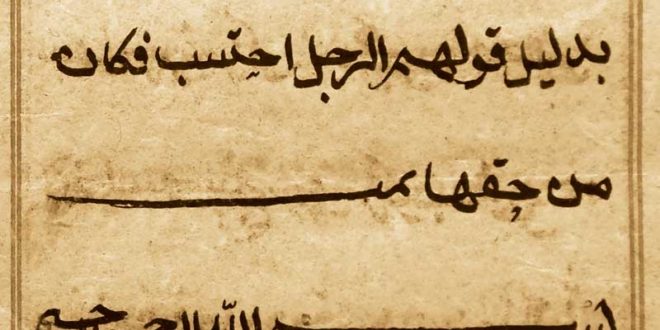 بدليل قولهم الرجل احتسب فكان
من حقها
الله